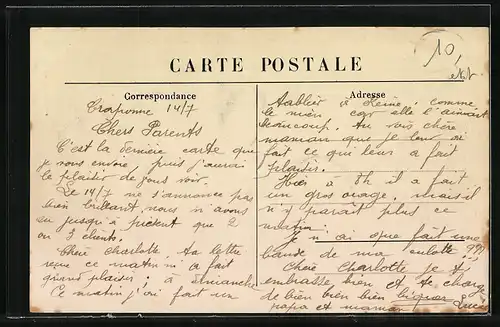 10,
CARTE POSTALE
Correspondance
Craponne 14/7
Chers Parents
C'est la dernière carte que
je vous envoie puis j'aurai
le plaisir de vous voir.
Le 14/7 ne s'annonce pas
bien brillant nous n'avons
eu jusqu'à présent que 2
ou 3 clients.
Chère Charlotte, ta lettre
reçue ce matin m'a fait
grand plaisir; à dimanche
Ce matin j'ai fait un
Adresse
tablier à Reine; comme
le mien car elle l'aimait
beaucoup. Tu vois chère
maman que je leur ai
fait ce qui leur a fait
plaisir.
Hier à 4h il a fait
un gros orage, mais il
n'y paraît plus ce
matin.
Je n'ai que fait une
bande de ma culotte
Chère Charlotte je t'
embrasse bien et te charge
de bien bien bien
papa et maman